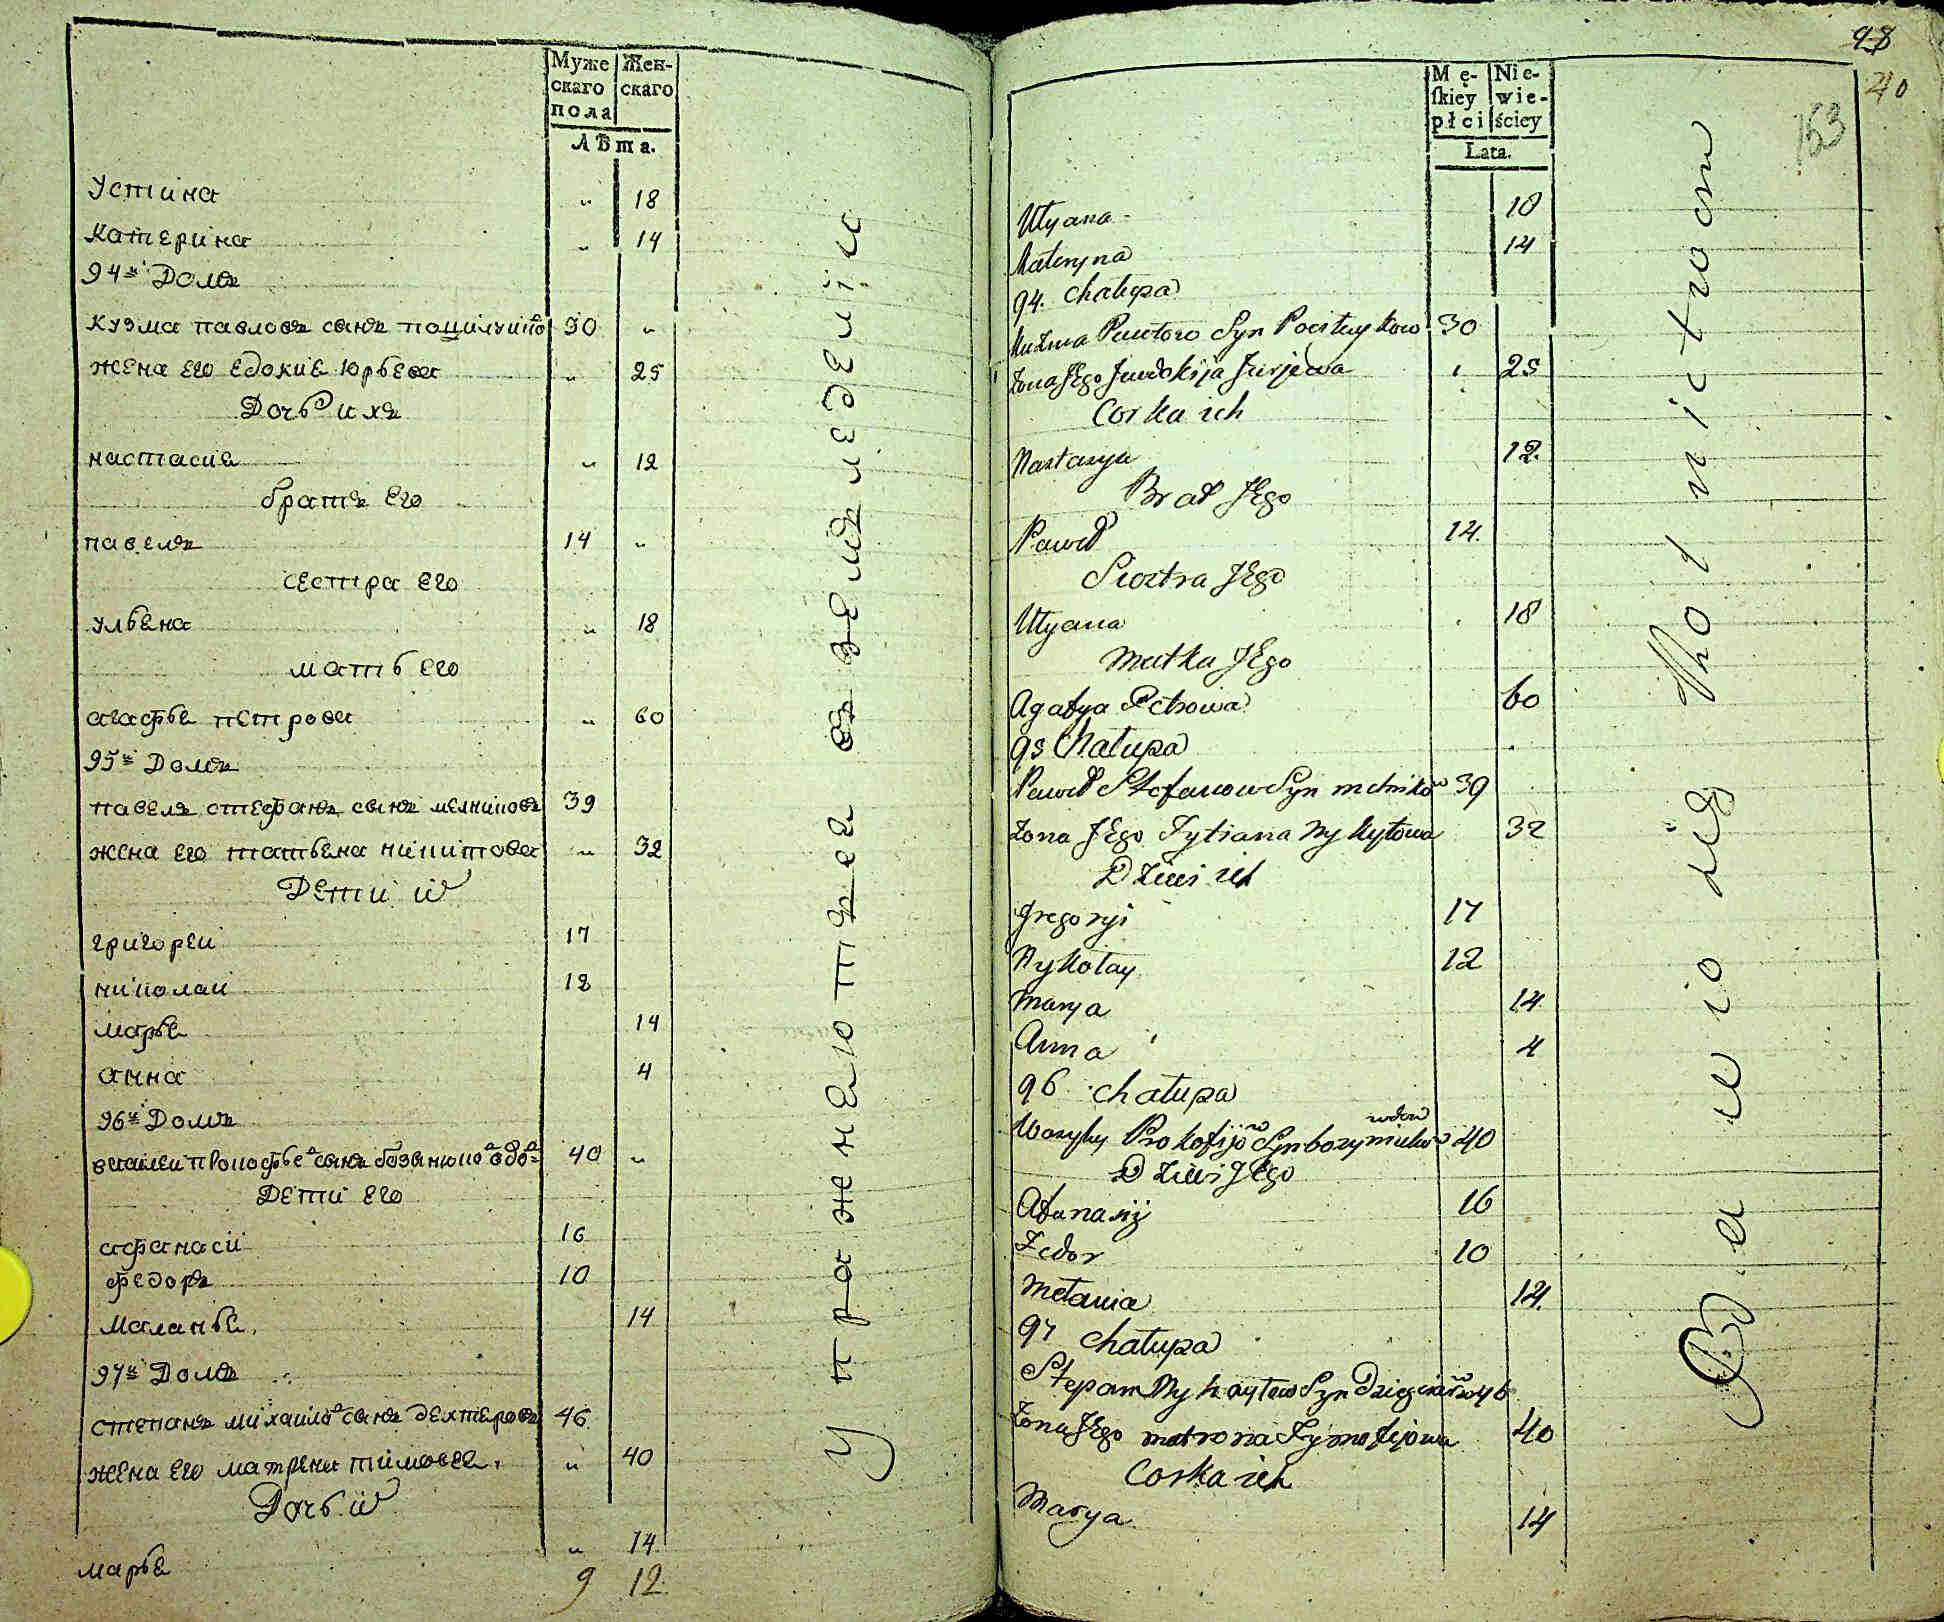 Муже
скаго
пола
Жен-
скаго
Лѣта.
Устина " 18
Катерина " 14
94й Домъ
Кузма павловъ сынъ поцилуико 30 "
жена его едокие Юрьева " 25
Дочь ихъ
настасие " 12
братъ его
павелъ 14 "
сестра его
ульена " 18
мать его
агафье петрова " 60
95й Домъ
павелъ стефанъ сынъ мелниковъ 39
жена его татьена никитова " 32
Дети и
григореи 17
николаи 12
марье 14
анна 4
96й Домъ
40 "
Дети его
афанаси 16
федоръ 10
маланье 14
97й Домъ
степанъ михаило сынъ дехтеровъ 46
жена его матрена тимовеева " 40
Дочь и
марье " 14
9 12
упражнеютцеа въ земледелiю
98
40
153
Mę-
skiey
płci
Nie-
wie-
ściey
Lata.
Ulyana 18
Kateryna 14
94. Chałupa
Kuzma Pawłow Syn Pociłuykow 30
Żona Jego Juwdokija Jurjewa 25
Corka ich
Nastasya 12.
Brat Jego
Paweł 14.
Siostra Jego
Ulyana 18
Matka Jego
Agafya Petrowa 60
95 Chałupa
Paweł Stefanow Syn melnikow 39
Żona Jego Tytiana Nykytowa 32
Dzieci ich
Gregoryi 17
Nykołay 12
Marya 14
Anna 4
96 Chałupa
Wasyly Prokofijow Syn bozymukow wdow 40
Dzieci Jego
Afanasij 16
Fedor 10
Mełania 14.
97 Chałupa
Stepan Mykaytow Syn Dziegciarow 46
Żona Jego matrona Tymofejowa 40
Corka ich
Marya 14
Bawią się Rolnictwem